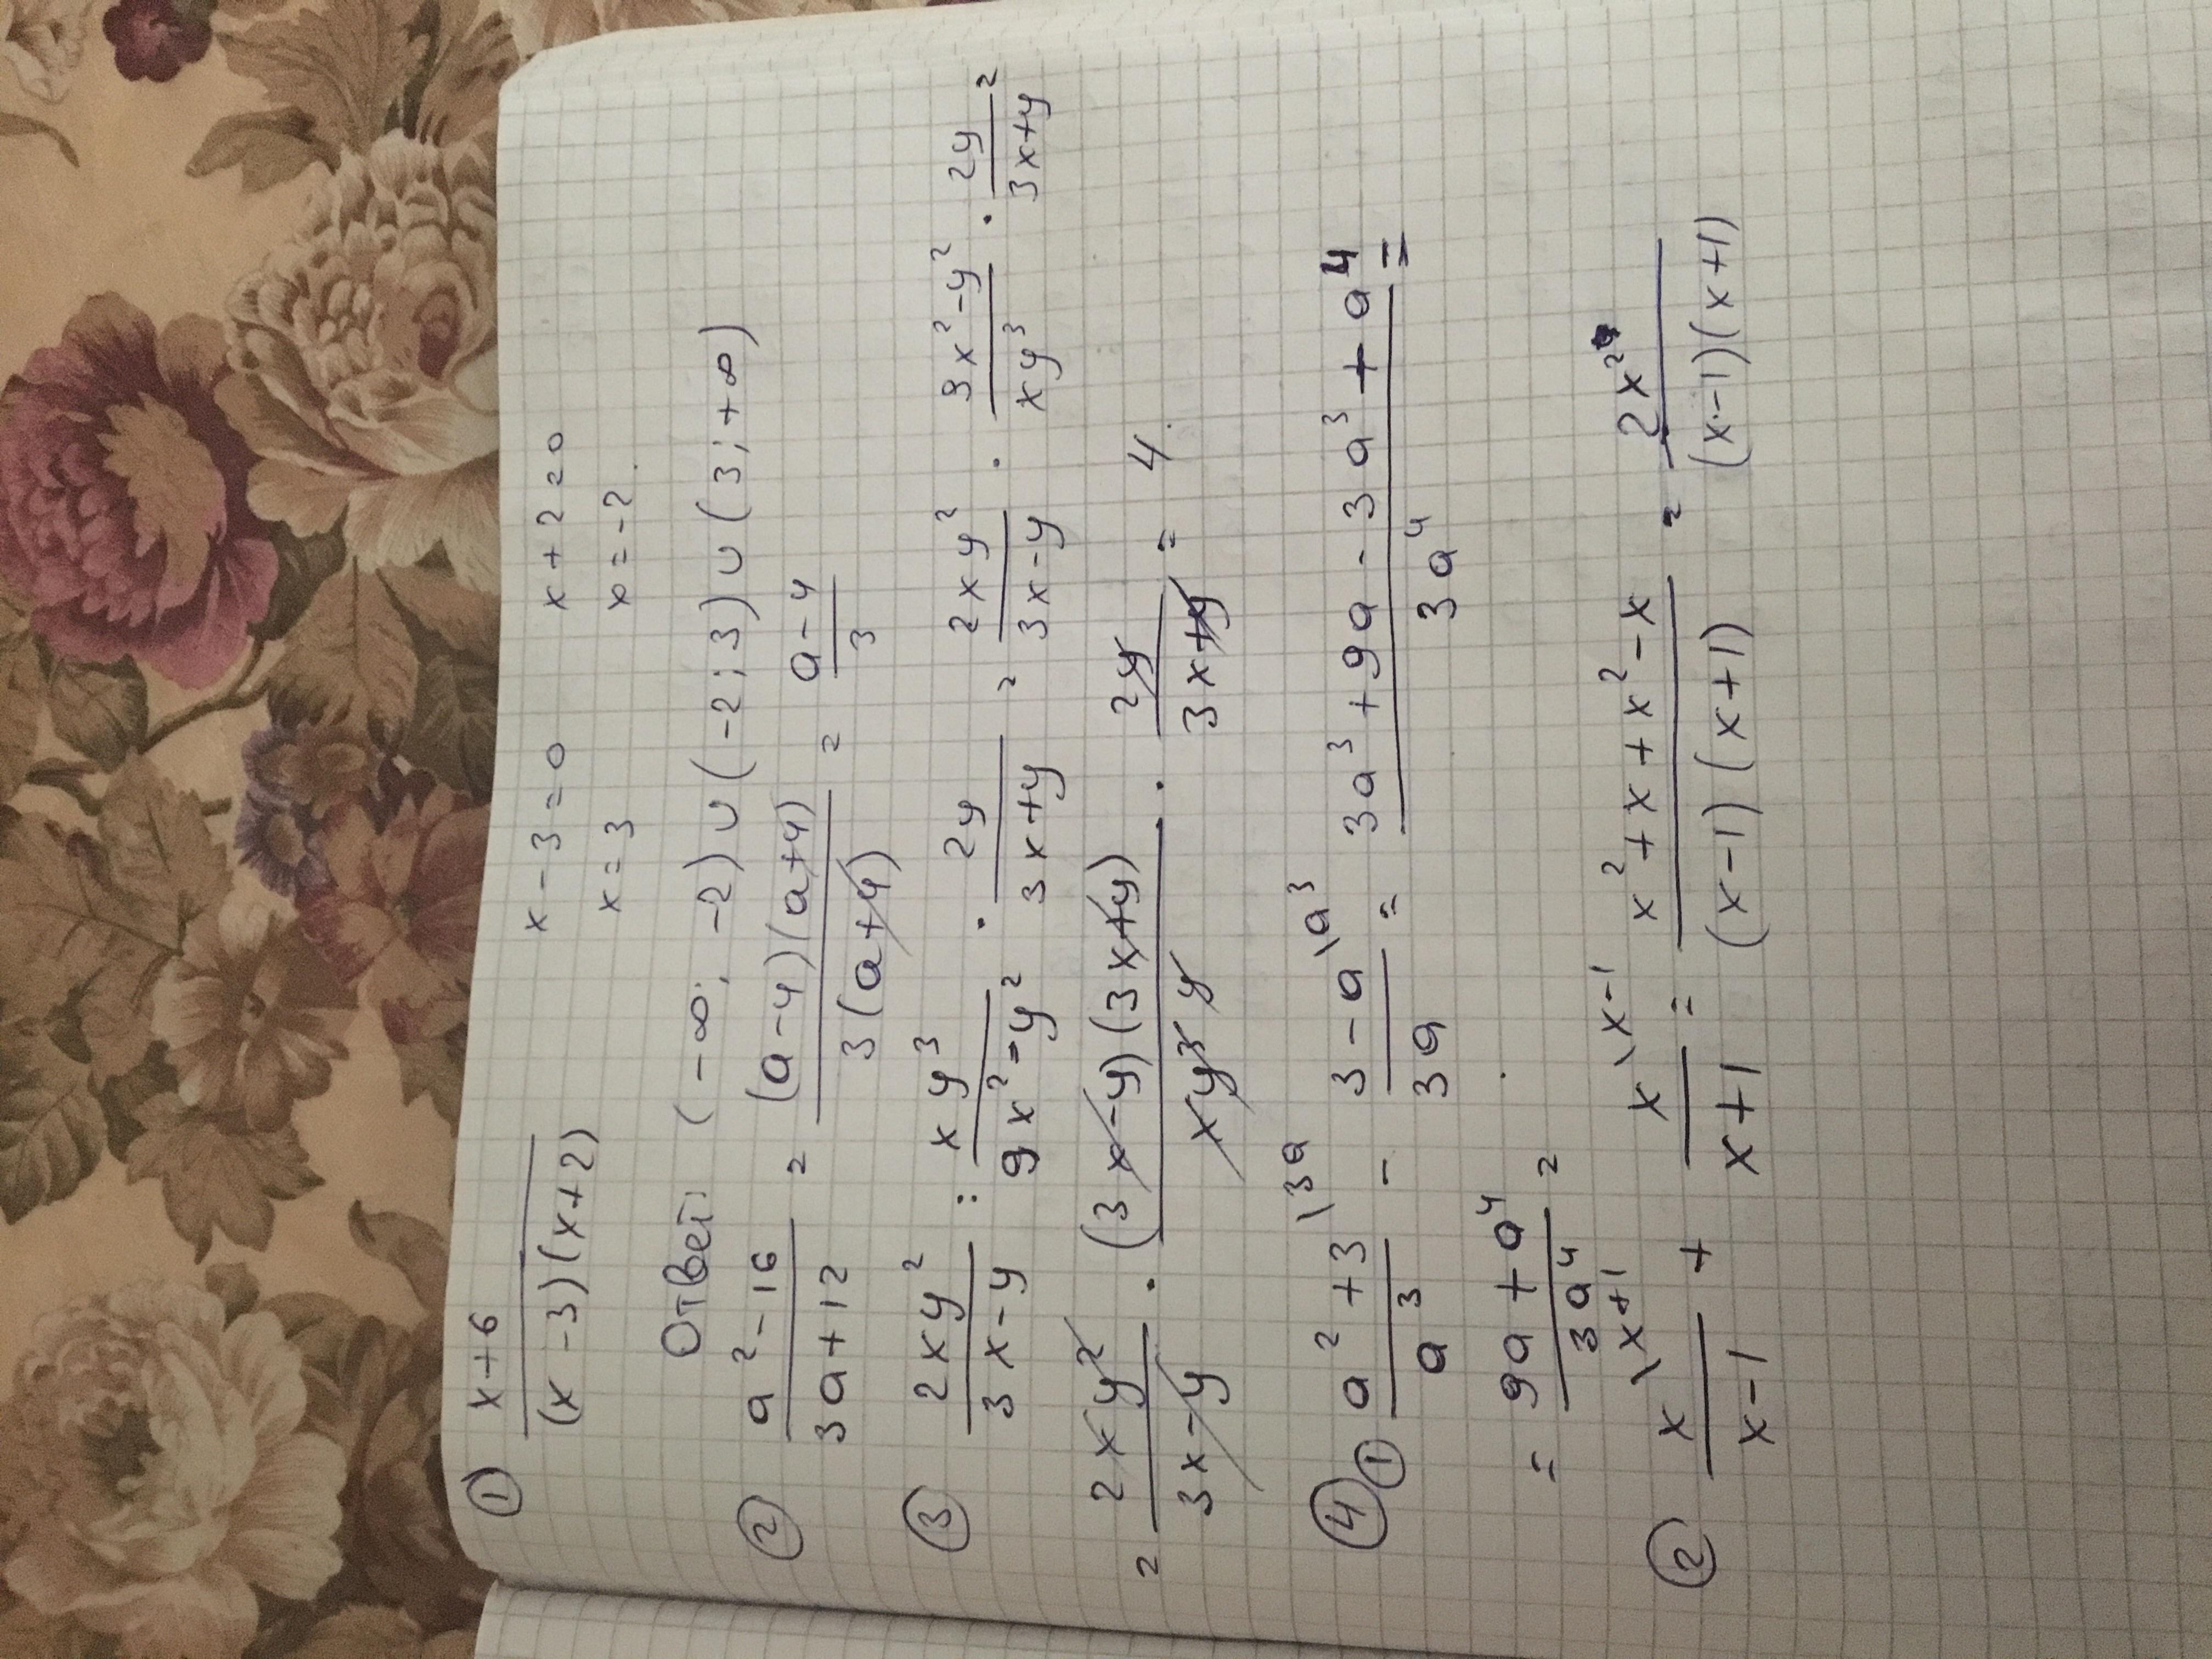 ① x+6 / (x-3)(x+2)   x-3=0   x+2=0
x=3   x=-2.
Ответ: (-∞; -2)∪(-2;3)∪(3;+∞)
② a²-16 / 3a+12 = (a-4)(a+4) / 3(a+4) = a-4 / 3
③ 2xy² / 3x-y : xy³ / 9x²-y² · 2y / 3x+y = 2xy² / 3x-y · 9x²-y² / xy³ · 2y / 3x+y =
= 2xy² / 3x-y · (3x-y)(3x+y) / xy³ y · 2y / 3x+y = 4.
④ ① a²+3 \3a / a³ - 3-a \a³ / 3a = 3a³+9a-3a³+a⁴ / 3a⁴ =
= 9a+a⁴ / 3a⁴ =
② x \x+1 / x-1 + x \x-1 / x+1 = x²+x+x²-x / (x-1)(x+1) = 2x² / (x-1)(x+1)